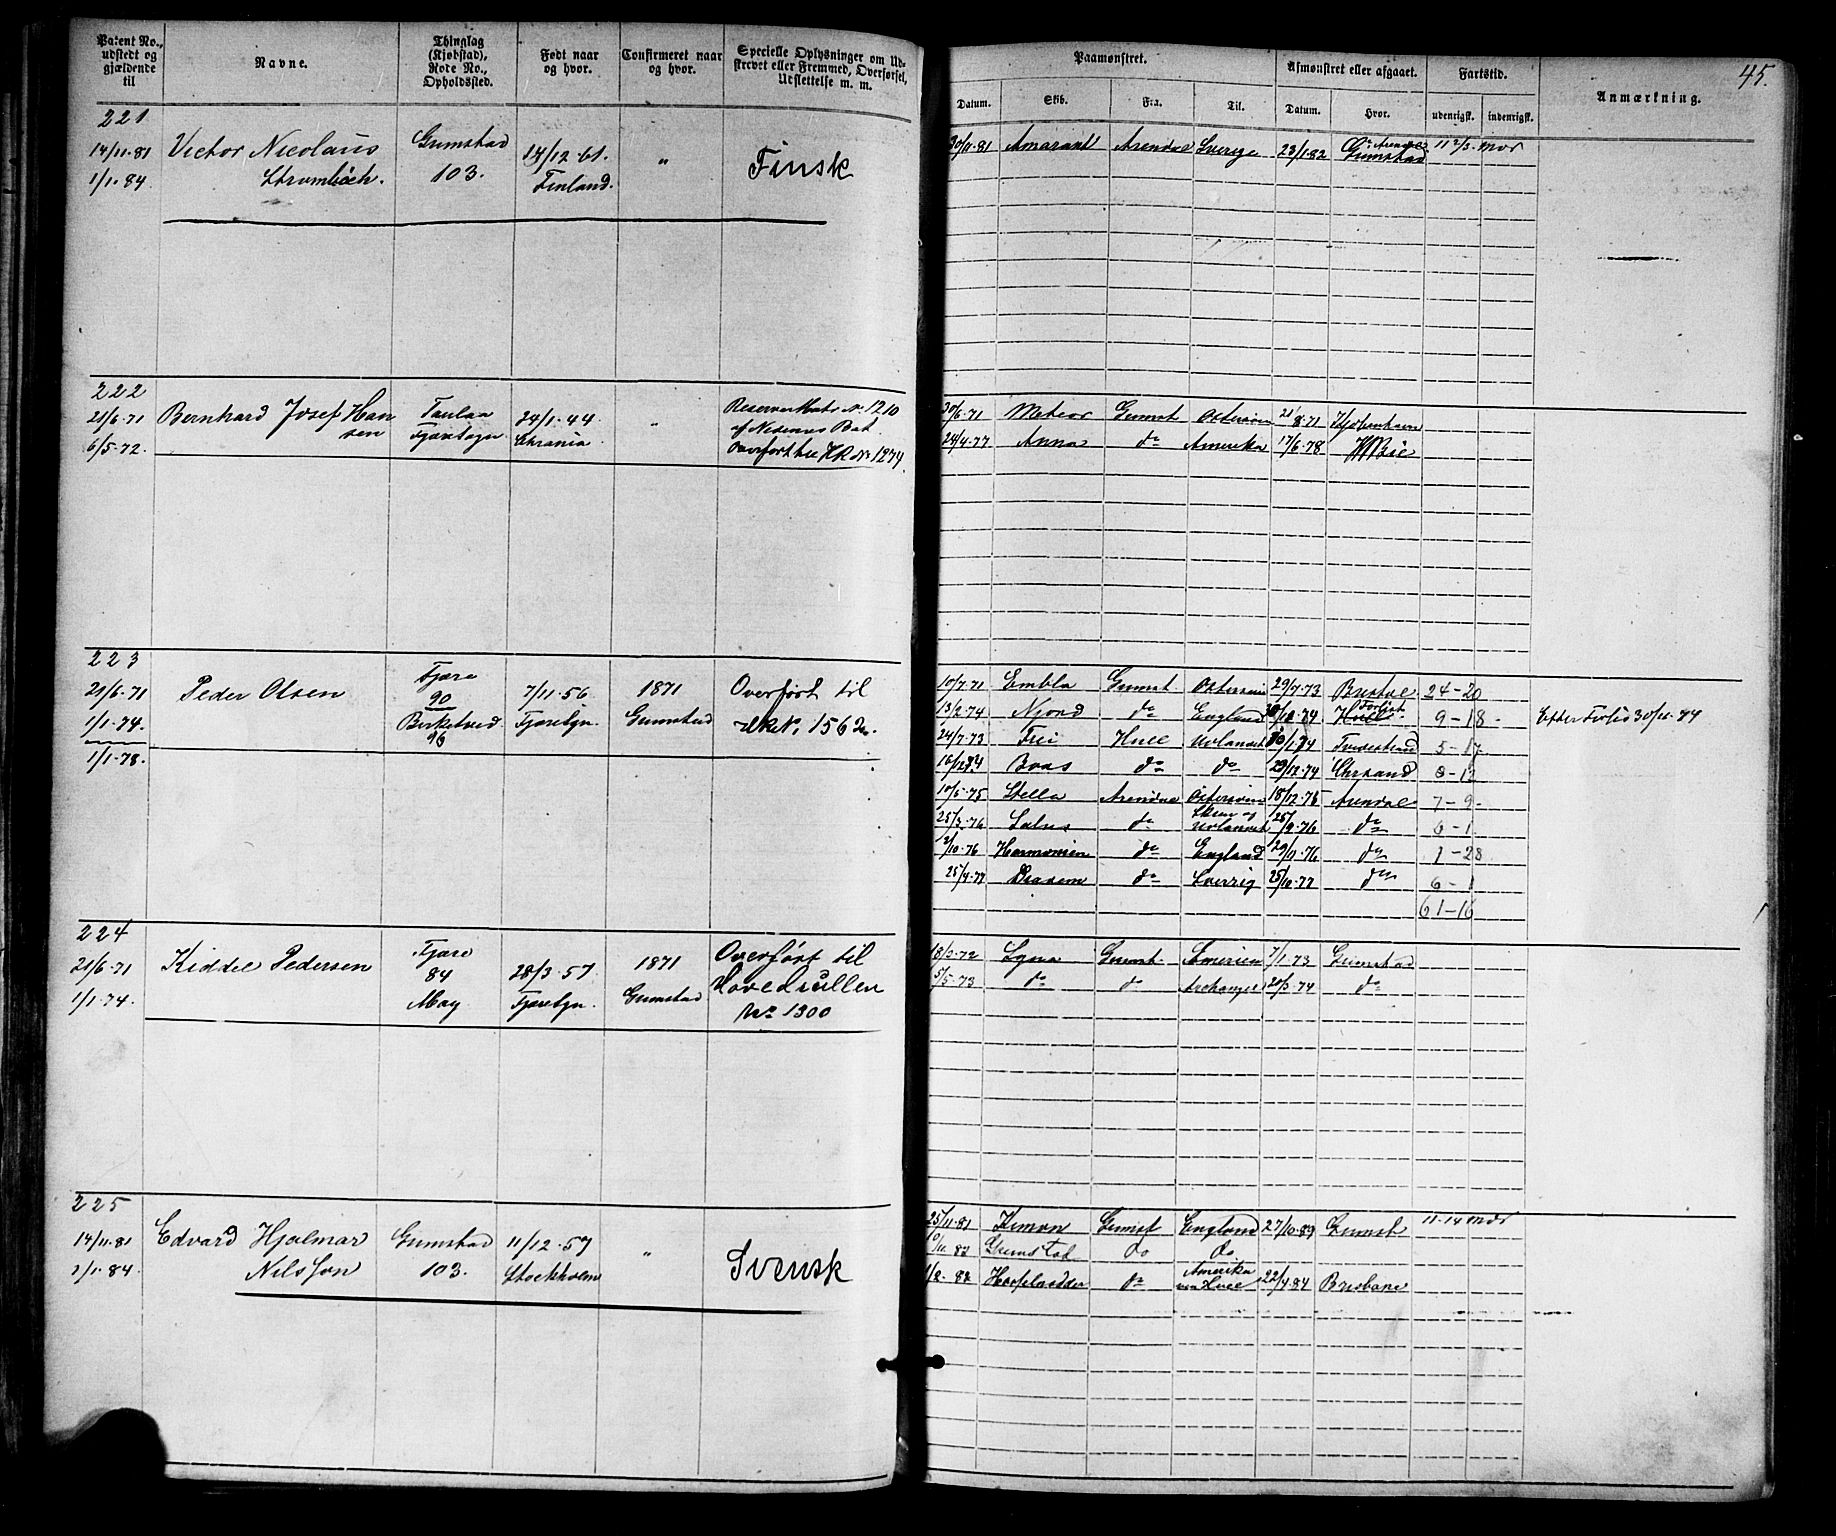 Patent No., udstedt og gjældende til
Navne.
Thinglag (Kjøbstad), Rote No., Opholdssted.
Født naar og hvor.
Confirmeret naar og hvor.
Specielle Oplysninger om Udskrevet eller Fremmed, Overførsel, Udslettelse m. m.
Paamønstret.
Afmønstret eller afgaaet.
Fartstid.
Anmærkning.
45.
Datum. Skib. Fra. Til. Datum. Hvor. udenrigsk. indenrigsk.
221
14/11.81 Victor Nicolaus Grimstad 14/12.61. " Finsk
1/1.84. Strømbäch. 103. Finland.
30/11.81 Amarant Arendal Sverige 23/1.82 Grimstad
222
21/6.71 Bernhard Josef Han 24/1.44 "
6/5.72. sen Chrania
30/6.71 Meteor Grimst Østersøen 21/8.71 Kjøbenhavn
24/4.77 Anna do Amerika 17/6.78
223
21/6.71 Peder Olsen Fjære 7/11.56 1871 Overført til
1/1.74. 90 Fjæreign. Grimstad 1562
1/1.78. Birketved
96
10/7.71 Embla Grimst. Østersøen 29/7.73 Bristol 24-20
13/2.74 Njord do England Hull 9-18 Efter Forlis 30/11.74
24/7.73 Frei Hull Tvedestrand 5-17
Boas do do 29/12.74 Chrsand 8-12
10/5.75 Stella Arendal Østersøen 18/12.75 Arendal 7-9
25/3.76 do 25/9.76 do 6-1
2/10.76 Harmonien do England 29/11.76 do 1-28
25/4.77 do Sverrig 25/10.77 do 6-1
61-16
224
21/6.71 Kiddel Pedersen Fjære 28/3.57 1871 Overført til
1/1.74. 84 Fjæreign. Grimstad Hovedrullen
May No 1300
18/3.72 Grimst. 7/1.73 Grimstad
5/5.73 do do Archangel 20/3.74 do
225
14/11.81 Edvard Hjalmar Grimstad 11/12.57 " Svensk
1/1.84. Nilsson 103. Stockholm
25/11.81 Kimon Grimst England 27/10.83 Grimst 11-14
Grimstad do do
do Amerika 22/4.84 Brisbane